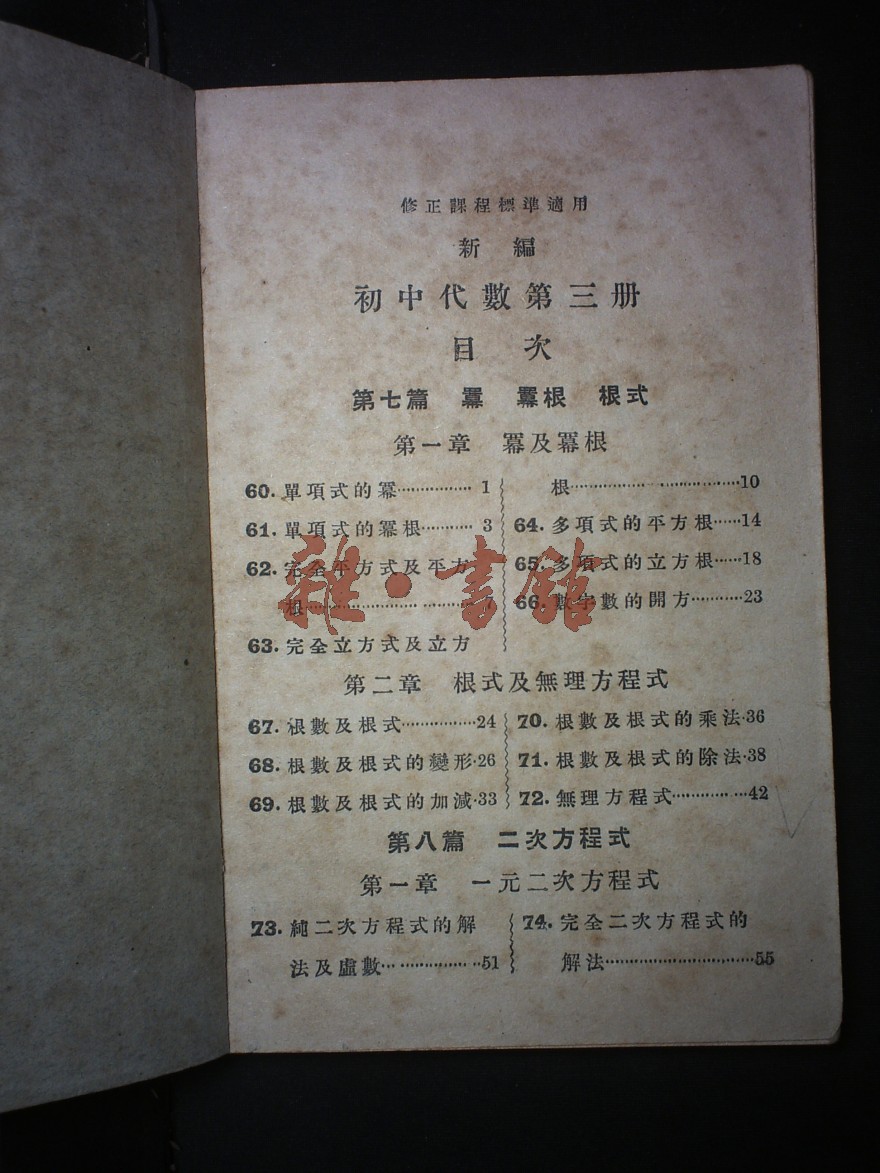 修正課程標準適用
新編
初中代數第三册
目次
第七篇 羃 羃根 根式
第一章 冪及冪根
60. 單項式的冪················ 1
61. 單項式的冪根·········· 3
62. 完全平方式及平方
根····················
63. 完全立方式及立方
根································10
64. 多項式的平方根······14
65. 多項式的立方根······18
66. 數字數的開方··········23
第二章 根式及無理方程式
67. 根數及根式···············24
68. 根數及根式的變形·26
69. 根數及根式的加減·33
70. 根數及根式的乘法·36
71. 根數及根式的除法·38
72. 無理方程式···············42
第八篇 二次方程式
第一章 一元二次方程式
73. 純二次方程式的解
法及虛數···················51
74. 完全二次方程式的
解法······························55
雜·書館